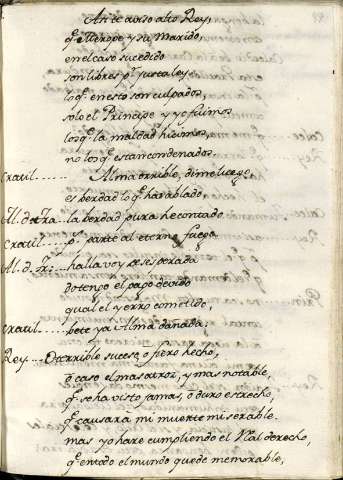 Asi te aviso alto Rey,
q̃ Merope y su Marido,
en el caso sucedido
son libres pr. justa ley
lo q̃ en esto son culpados,
solo el Principe y yo fuimos
los q̃ la maldad hicimos,
no los q̃ estan condenados.
Cratil...... Alma orrible, dime luego,
es berdad lo q̃ ha rablado,
Al. de Tra. la berdad pura he contado
Cratil...... pr. parte al eterno fuego.
Al. d. Tr. ... halla voy desesperada
do tengo el pago devido
qual el yerro cometido,
Cratil...... bete ya Alma dañada.
Rey.... O terrible suceso, o fiero hecho,
o caso el mas atroz, y mas notable,
q̃ se ha visto jamas, o duro estrecho,
q̃ causara mi muerte miserable.
mas yo hare cumpliendo el Rl. derecho,
q̃ en todo el mundo quede memorable,